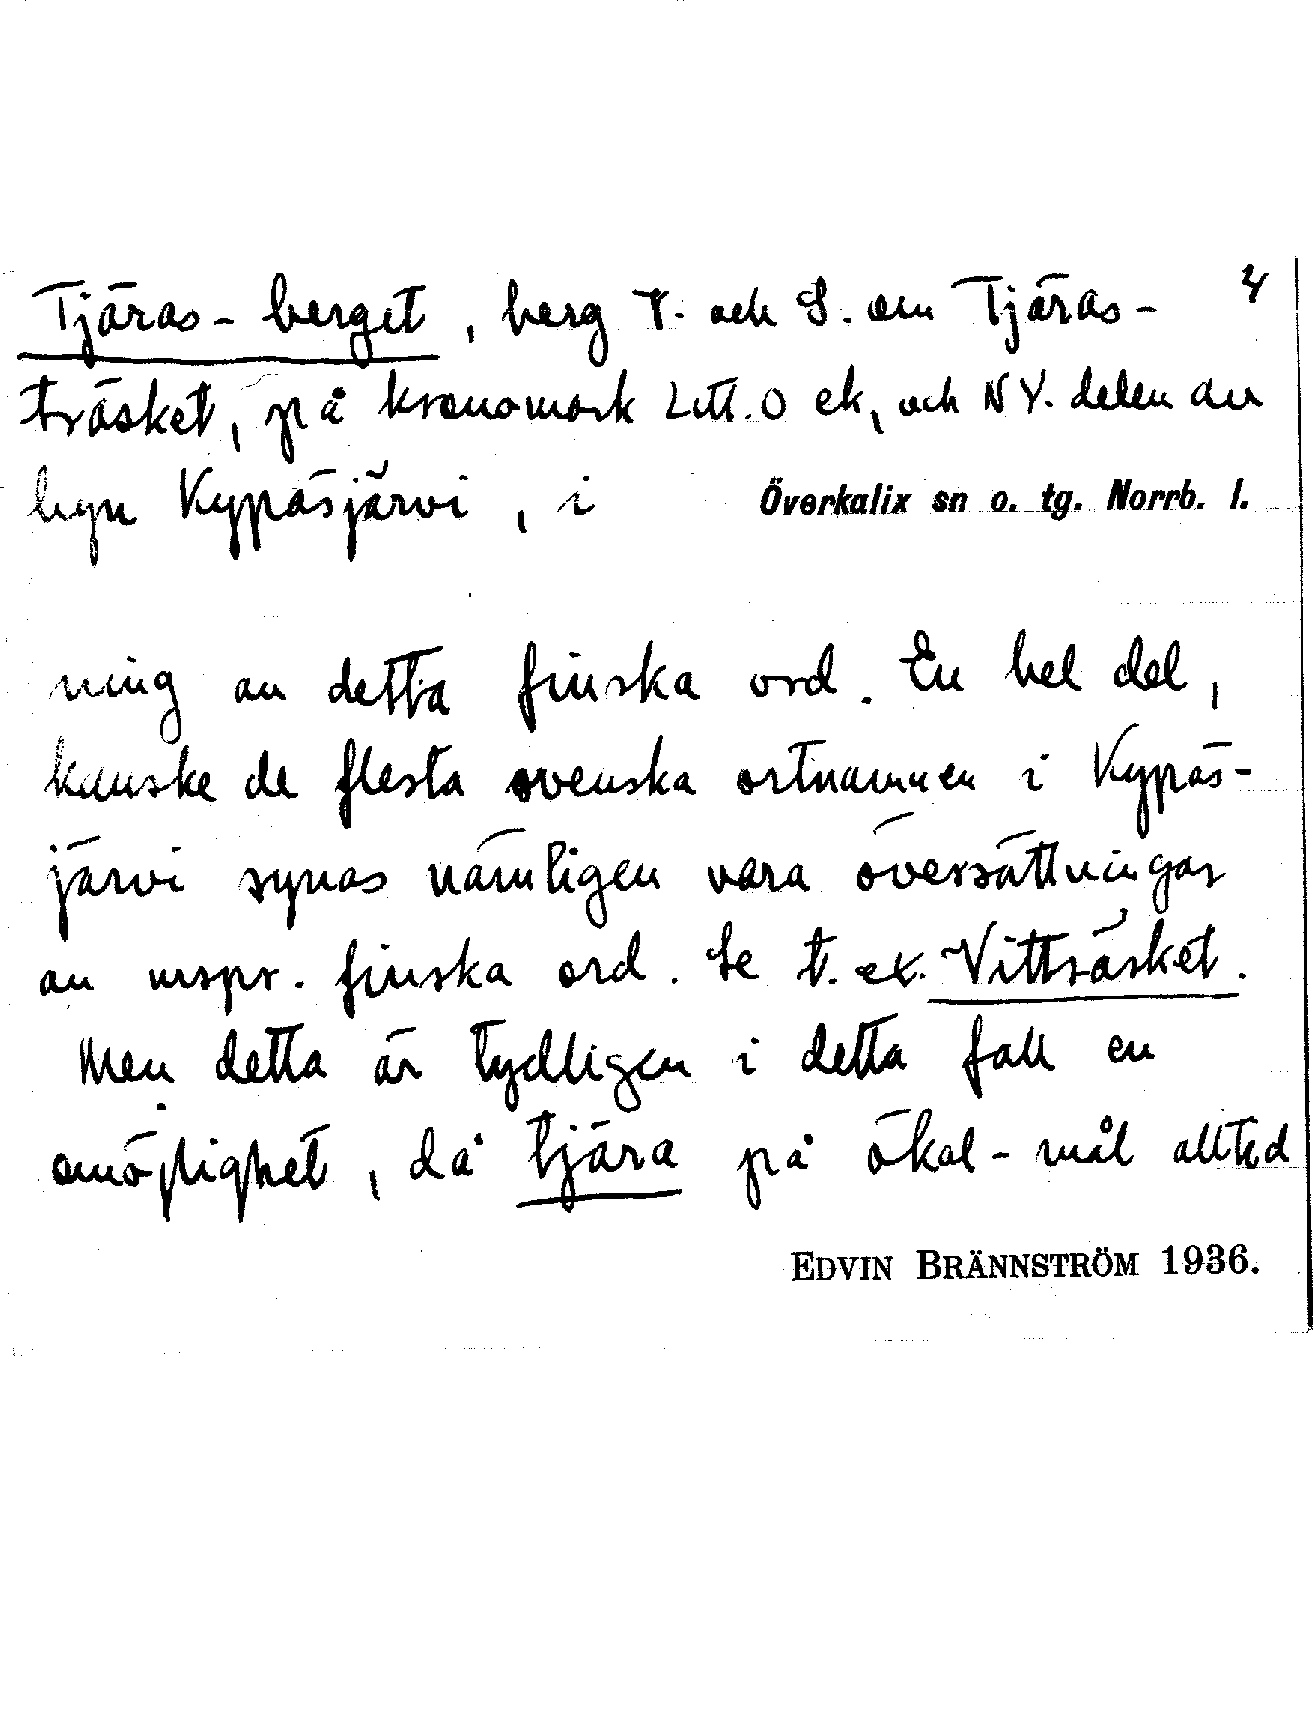 Tjäras-berget, berg V. och S. om Tjäras- 4
träsket, på kronomark Litt. O ek, och NV. delen av
byn Kypasjärvi, i Överkalix sn o. tg. Norrb. l.
ning av detta finska ord. En hel del,
kanske de flesta svenska ortnamnen i Kypäs-
järvi synas nämligen vara översättningar
av urspr. finska ord. Se t. ex. Vitträsket.
Men detta är tydligen i detta fall en
omöjlighet, då tjära på ökal-mål alltid
EDVIN BRÄNNSTRÖM 1936.